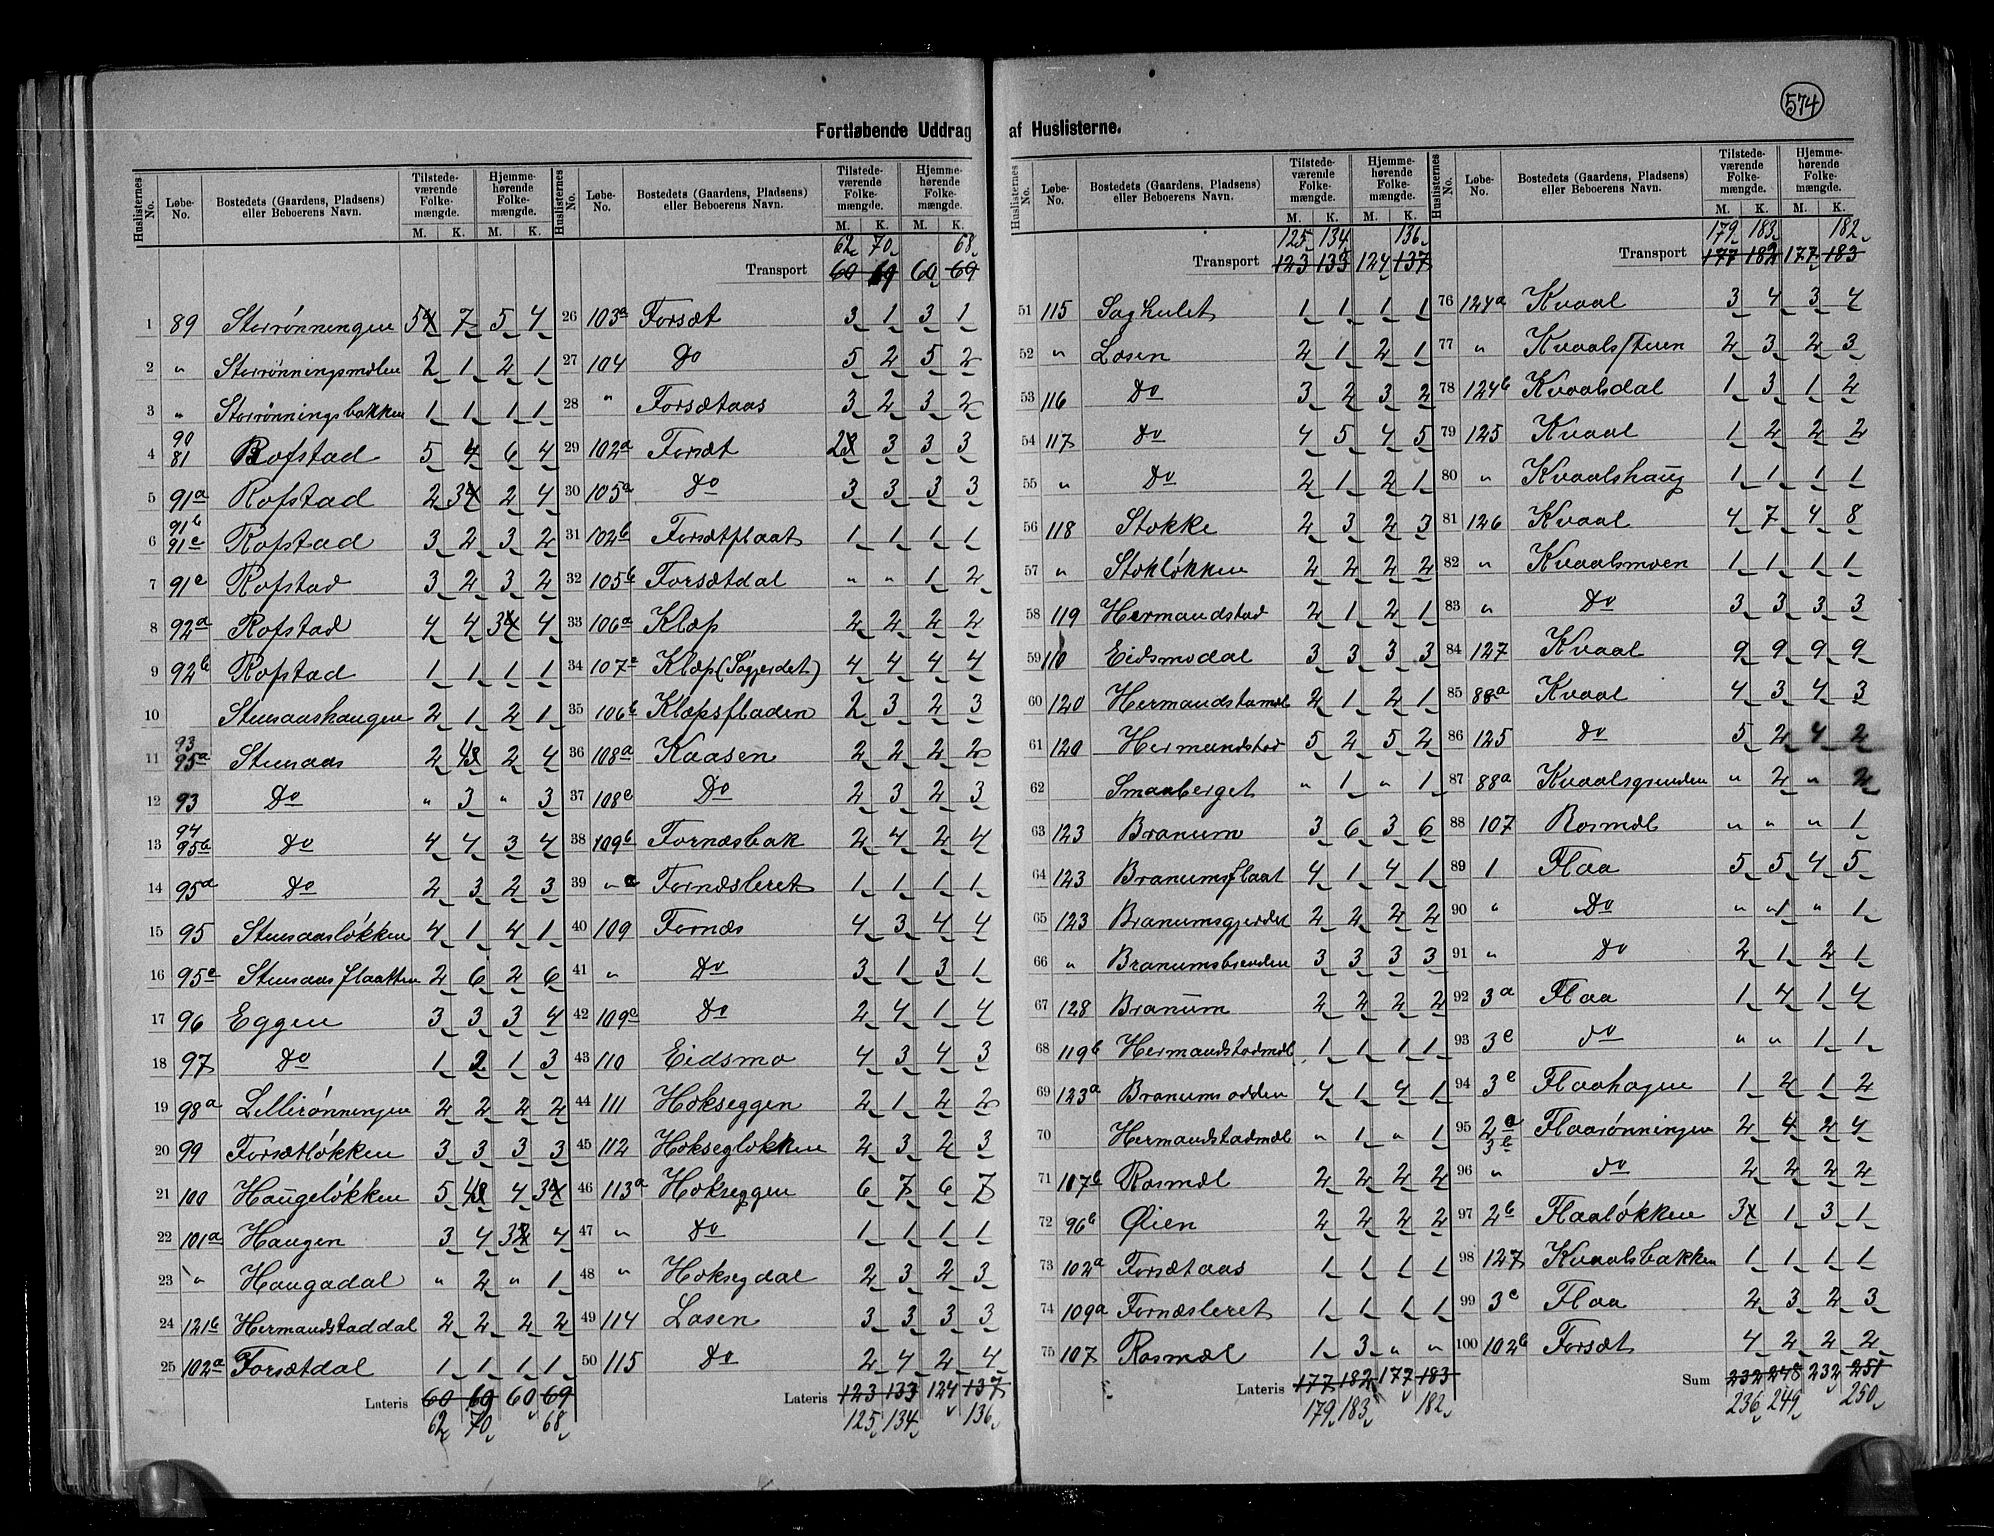 574
Fortløbende Uddrag af Huslisterne.
Huslisternes No. Løbe-No. Bostedets (Gaardens, Pladsens) eller Beboerens Navn. Tilstedeværende Folkemængde. M. K. Hjemmehørende Folkemængde. M. K.
1 89 Storrønningen 5 7 5 4
2 " Storrønningsmølen 2 1 2 1
3 " Storrønningsbakken 1 1 1 1
4 90 81 Rofstad 5 4 6 4
5 91a Rofstad 2 3 2 4
6 91b 91c Rofstad 3 2 3 2
7 91c Rofstad 3 2 3 2
8 92a Rofstad 4 4 3 4
9 92b Rofstad 1 1 1 1
10 Stensaashaugen 2 1 2 1
11 93 95a Stensaas 2 4 2 4
12 93 Do " 3 " 3
13 94 95b Do 4 4 3 4
14 95a Do 2 3 2 3
15 95 Stensaasløkken 4 1 4 1
16 95c Stensaasflaatten 2 6 2 6
17 96 Eggen 3 3 3 4
18 97 Do 1 2 1 3
19 98a Lillirønningen 2 2 2 2
20 99 Forsætløkken 3 3 3 3
21 100 Haugeløkken 5 4 4 3
22 101a Haugen 3 4 3 4
23 " Haugadal " 2 " 1
24 121b Hermandstaddal 2 2 2 2
25 102a Forsætdal 1 1 1 1
Lateris 60 69 60 69
62 70 68
62 70 68
Transport 60 69 60 69
26 103a Forsæt 3 1 3 1
27 104 Do 5 2 5 2
28 " Forsætaas 3 2 3 2
29 102a Forsæt 2 3 3 3
30 105a Do 3 3 3 3
31 102b Forsætflaat 1 1 1 1
32 105b Forsætdal " " 1 2
33 106a Klæp 2 2 2 2
34 107a Klæp (Søgjerdet) 4 4 4 4
35 106b Klæpsfladen 2 3 2 3
36 108a Kaasen 2 2 2 2
37 108c Do 2 3 2 3
38 109b Fornæsbak 2 4 2 4
39 " c Fornæsleret 1 1 1 1
40 109 Fornæs 4 3 4 4
41 " Do 3 1 3 1
42 109c Do 2 4 1 4
43 110 Eidsmo 4 3 4 3
44 111 Hokseggen 2 1 2 2
45 112 Hoksegløkken 2 3 2 3
46 113a Hokseggen 6 7 6 7
47 " Do 1 1 1 1
48 " Hoksegdal 2 3 2 3
49 114 Losen 3 3 3 3
50 115 Do 2 4 2 4
Lateris 123 133 124 137
125 134 136
125 134 136
Transport 123 133 124 137
51 115 Saghulet 1 1 1 1
52 " Losen 2 1 2 1
53 116 Do 3 2 3 2
54 117 Do 4 5 4 5
55 " Do 2 1 2 1
56 118 Stokke 2 3 2 3
57 " Stokløkken 2 2 2 2
58 119 Hermandstad 2 1 2 1
59 110 Eidsmodal 3 3 3 3
60 120 Hermandstadmæl 2 1 2 1
61 120 Hermandstad 5 2 5 2
62 Smaaberget " 1 " 1
63 123 Branum 3 6 3 6
64 123 Branumsflaat 4 1 4 1
65 123 Branumsgjerdet 2 2 2 2
66 " Branumsbrenden 3 3 3 3
67 128 Branum 2 2 2 2
68 119b Hermandstadmæl 1 1 1 1
69 123a Branumsodden 4 1 4 1
70 Hermandstadmæl " 1 " 1
71 107b Rosmæl 2 2 2 2
72 96b Øien 2 2 2 2
73 102a Forsætaas 1 1 1 1
74 109a Fornæsleret 1 1 1 1
75 107 Rosmæl 1 3 " "
Lateris 177 182 177 183
179 183 182
179 183 182
Transport 177 182 177 183
76 124a Kvaal 3 4 3 4
77 " Kvaalsteien 2 3 2 3
78 124b Kvaalsdal 1 3 1 2
79 125 Kvaal 1 2 2 2
80 " Kvaalshaug 1 1 1 1
81 126 Kvaal 4 7 4 8
82 " Kvaalsmoen 1 1 1 1
83 " Do 3 3 3 3
84 127 Kvaal 9 9 9 9
85 88a Kvaal 4 3 4 3
86 125 Do 5 2 4 2
87 88a Kvaalsgrunden " 2 " 2
88 107 Rosmæl " " " 1
89 1 Flaa 5 5 4 5
90 " Do " 1 " 1
91 " Do 2 1 2 1
92 3a Flaa 1 4 1 4
93 3c do " " 1 1
94 3c Flaahagen 1 2 1 2
95 2a 3b Flaarønningen 2 4 2 4
96 " do 2 2 2 2
97 2b Flaaløkken 3 1 3 1
98 127 Kvaalsbakken 1 1 1 1
99 3c Flaa 2 3 2 3
100 102b Forsæt 4 2 2 2
Sum 232 248 232 251
236 249 250